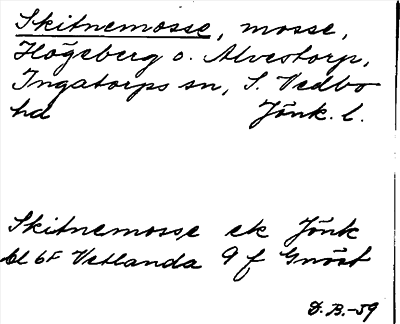 Skitnemosse, mosse,
Högeberg o. Alvestorp,
Ingatorps sn, S. Vedbo
hd Jönk. l.
Skitnemosse ek Jönk
bl 6F Vetlanda 9 f Gnöst
D. B. -59